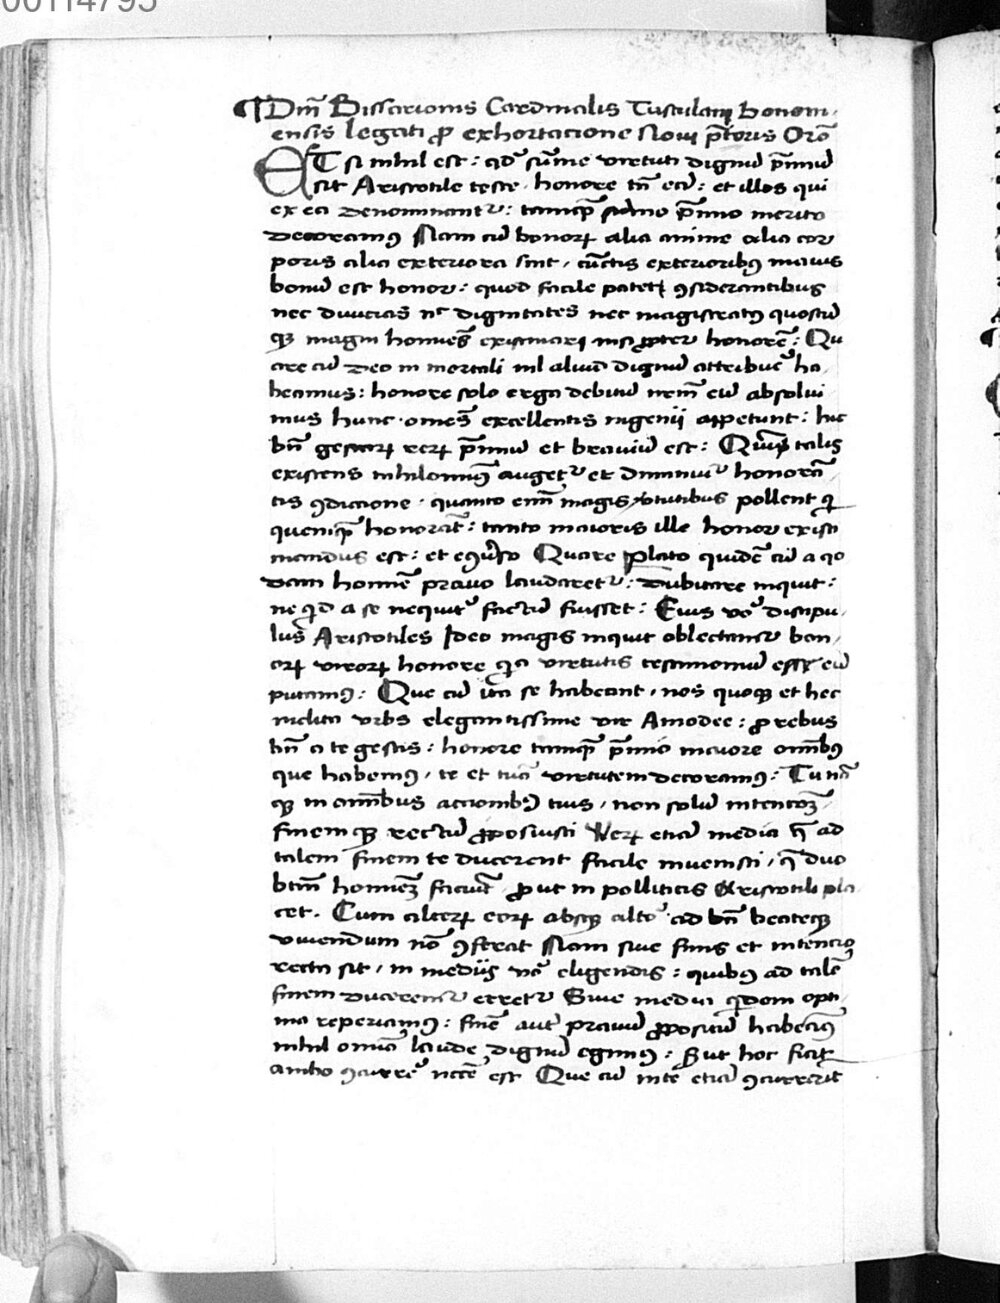 00114795
¶ Dm̄ Bissarionis Cardinalis Tusculanj bononi-
ensis legati ꝓ exhortacione Noui p̄toris Oro͂
ET si nihil est: qd' su͂me virtuti dignu͂ p̄miu͂
sit Aristotile teste · honore tn̄ ea͂: et illos qui
ex ea denominantr̄: tamq̄ p̄mio merito
decoramꝰ Nam cu͂ bonoꝝ alia anime alia cor
poris alia exteriora sint, cu͂ctis exterioribꝰ maius
bonu͂ est honor: quod facile patet ꝯsiderantibus
nec diuicias nc̄ dignitates nec magistratꝰ quosuis
qꝫ magni homines̄ existimari nisi ꝓpter honore͂: Qu
are cu͂ deo in mortali nil aliud dignu͂ attribue͂ ha
beamus: honore solo erga debitu͂ nem̄ eu͂ absolui
mus hunc · omes̄ excellentis ingenij appetunt: hic
bn̄ gestaꝝ reꝝ p̄miu͂ et brauiu͂ est: talis
existens nihilominꝰ augetr̄ et diminuir̄ honora͂
tis ꝯdicione · quanto eni͂ magis virtutibus pollent qi
quemq̄ honora͂t: tanto maioris ille honor existi
mandus est: et eꝯu͂so Quare Plato quide͂ cu͂ a qo
dam homine͂ prauo laudaretr̄: dubitare inquit:
ne qd a se nequitr̄ factu͂ fuisset: Eius vo͂ discipu-
lus Aristotiles Ideo magis inquit oblectamr̄ bon-
oꝝ viroꝝ honore qa virtutis testimoniu͂ esse eu͂
putamꝰ: Que cu͂ ita se habeant, nos quoqꝫ et hec
inclita vrbs elegantissime vir Amodee: ꝓ rebus
bn̄ a te gestis: honore tamq̄ p̄mio maiore omnibꝰ
que habemꝰ, te et tua͂ virtutem decoramꝰ: Tu na͂
qꝫ in omnibus accionibꝰ tuis, non solu͂ intencoꝫ-
finemqꝫ rectu͂ ꝓposuisti Veꝝ etia͂ media q̄ ad
talem finem te ducerent facile inuenisti, q̄ duo
btm̄ homineꝫ faciu͂t, ꝓut in polliticis Aristotili pla
cet. Cum alteꝝ eoꝝ absqꝫ alto͂ ad bn̄ beateqꝫ
viuendum no͂ ꝯferat Nam siue finis et intencio
recta sit, in medijs vo͂ eligendis: quibꝰ ad tale͂
finem ducerem̄r erretr̄ Siue media qdam opti-
ma reperiamꝰ: fine͂ aute͂ prauu͂ ꝓpositu͂ habeamꝰ
nihil omnio͂ laude dignu͂ egimꝰ: Sut hoc fiat
ambo ꝯcurre͂ necce͂ est Que cu͂ in te etia͂ ꝯcurreri͂t